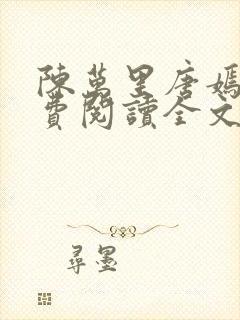 陳萬里唐嫣
費閱讀全文
尋墨